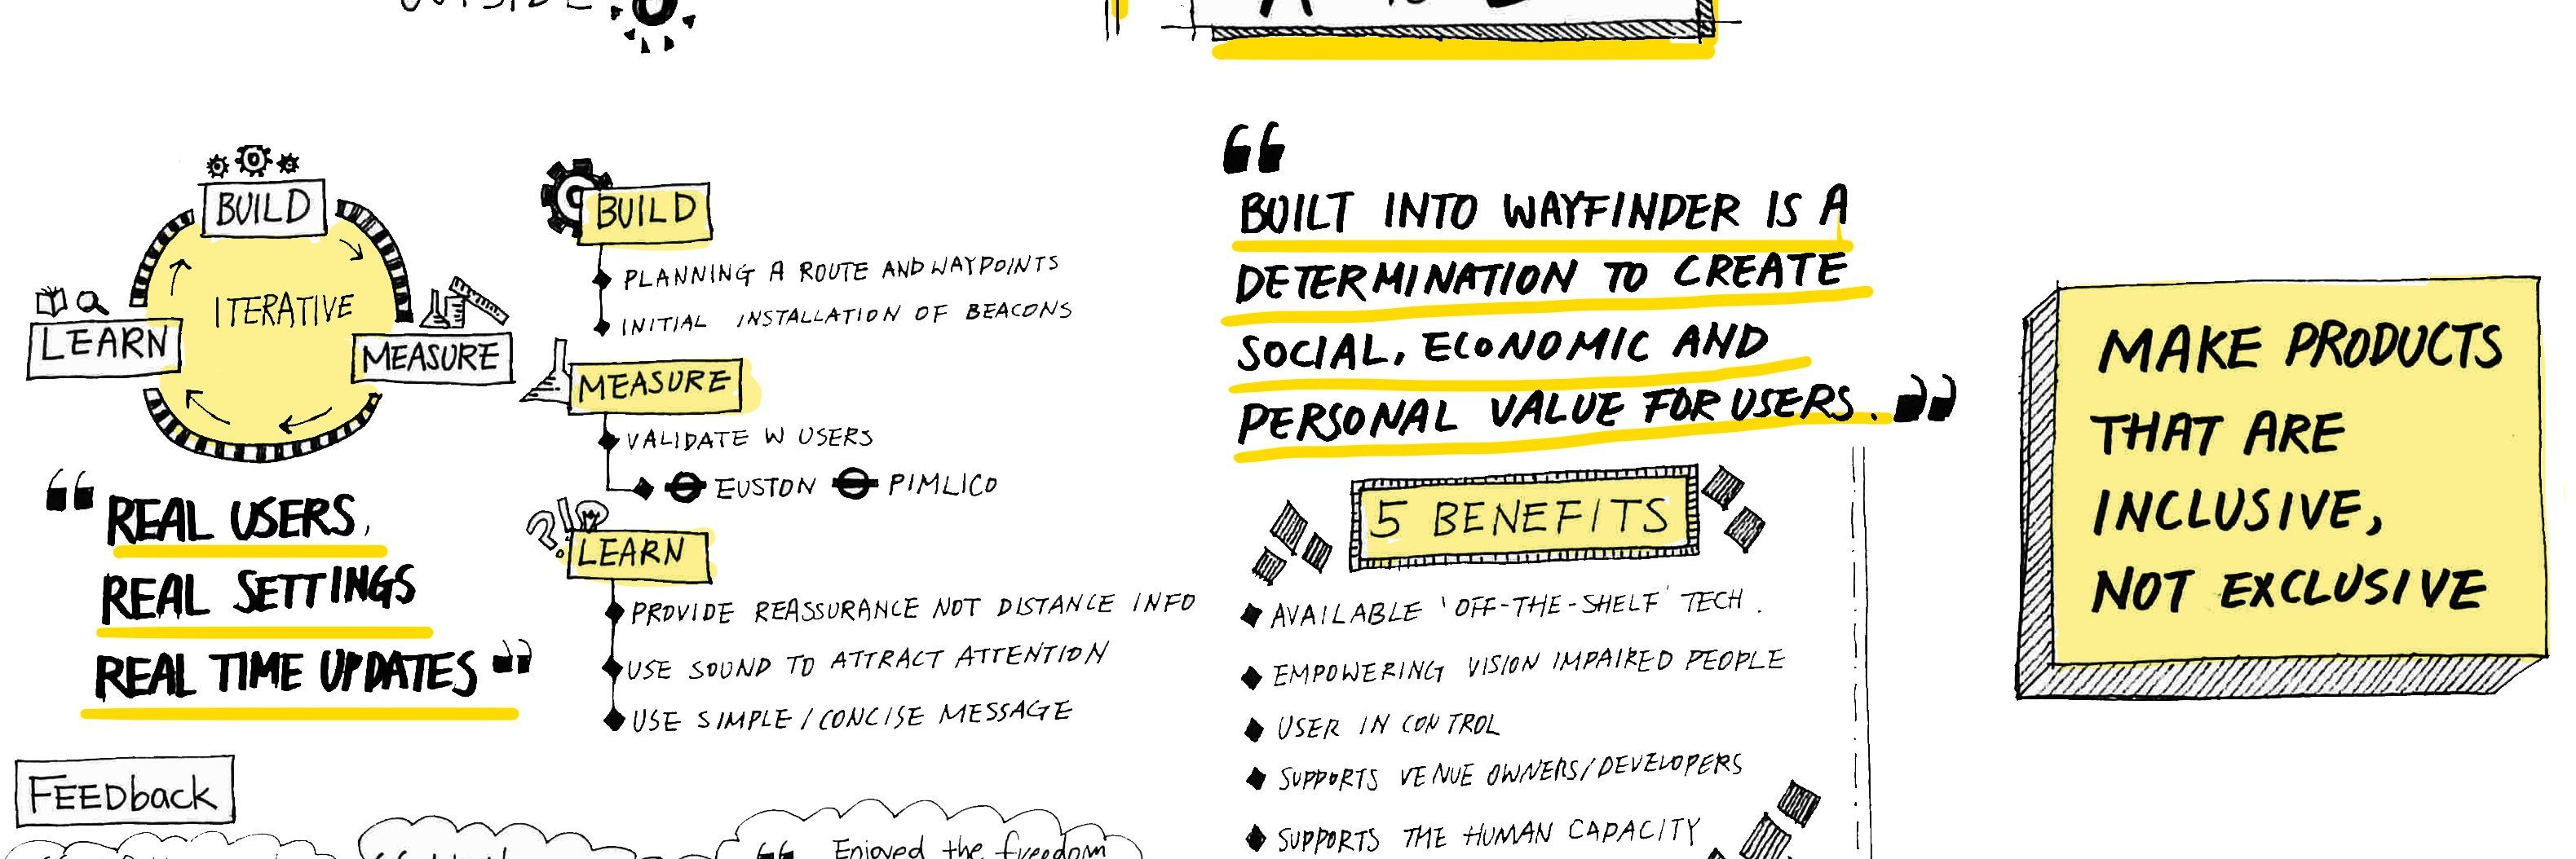 OUTSIDE
BUILD
ITERATIVE
LEARN
MEASURE
“ REAL USERS,
REAL SETTINGS
REAL TIME UPDATES ”
BUILD
PLANNING A ROUTE AND WAYPOINTS
INITIAL INSTALLATION OF BEACONS
MEASURE
VALIDATE W USERS
EUSTON PIMLICO
?! LEARN
PROVIDE REASSURANCE NOT DISTANCE INFO
USE SOUND TO ATTRACT ATTENTION
USE SIMPLE / CONCISE MESSAGE
FEEDback
“ Enjoyed the freedom
“
BUILT INTO WAYFINDER IS A
DETERMINATION TO CREATE
SOCIAL, ECONOMIC AND
PERSONAL VALUE FOR USERS. ”
5 BENEFITS
AVAILABLE 'OFF-THE-SHELF' TECH.
EMPOWERING VISION IMPAIRED PEOPLE
USER IN CONTROL
SUPPORTS VENUE OWNERS/DEVELOPERS
SUPPORTS THE HUMAN CAPACITY
MAKE PRODUCTS
THAT ARE
INCLUSIVE,
NOT EXCLUSIVE